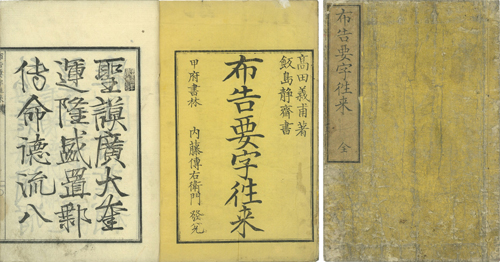 布告要字徃来
全
高田義甫著
飯島静齋書
布告要字徃来
甲府書林 内藤傳右衛門 發兌
聖謨廣大奎
運隆盛置郵
傳命德流八